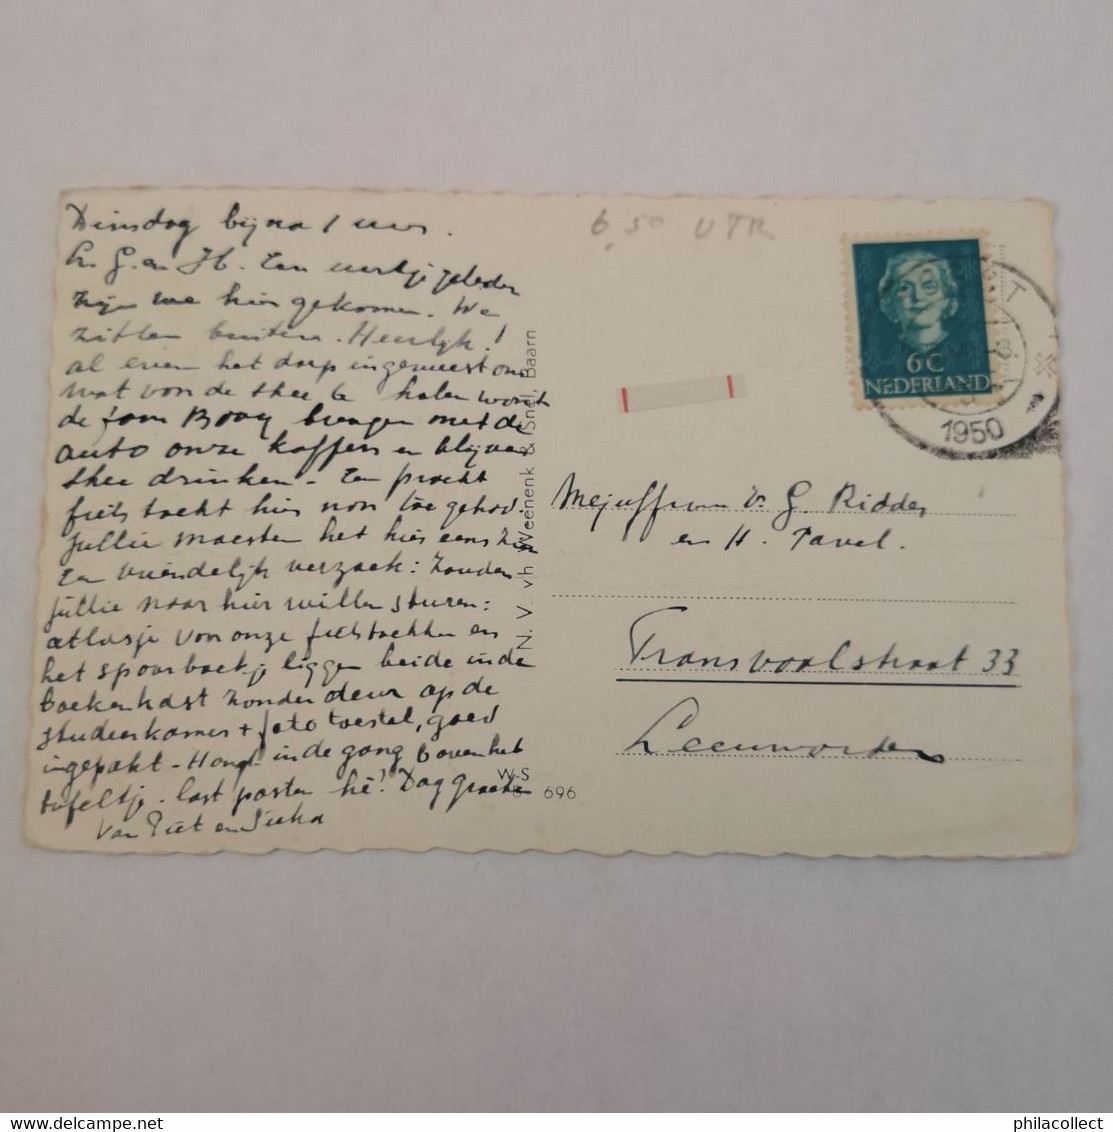 Dinsdag bijna 1 uur.
L. G. en H. Een uurtje geleden
zijn we hier gekomen. We
zitten buiten. Heerlijk!
al even het dorp in geweest om
wat voor de thee te halen want
de fam Booy brengen met de
auto onze koffers en blijven
thee drinken - Een pracht
fietstocht hier naar toe gehad.
Jullie moesten het hier eens zien
Een vriendelijk verzoek: Zouden
jullie naar hier willen sturen:
atlasje van onze fietstochten en
het spoorboekje liggen beide in de
boekenkast zonder deur op de
studeerkamer + foto toestel, goed
ingepakt - Hangt in de gang boven het
tafeltje. last posten hè! Dag groeten
van Piet en
N. V. v.h. Weenenk & Snel, Baarn
W-S
696
6,50 UTR
6C
NEDERLAND
1950
Mejuffrouw G. Ridder
en H. Pavel.
Transvaalstraat 33
Leeuwarden
philacollect